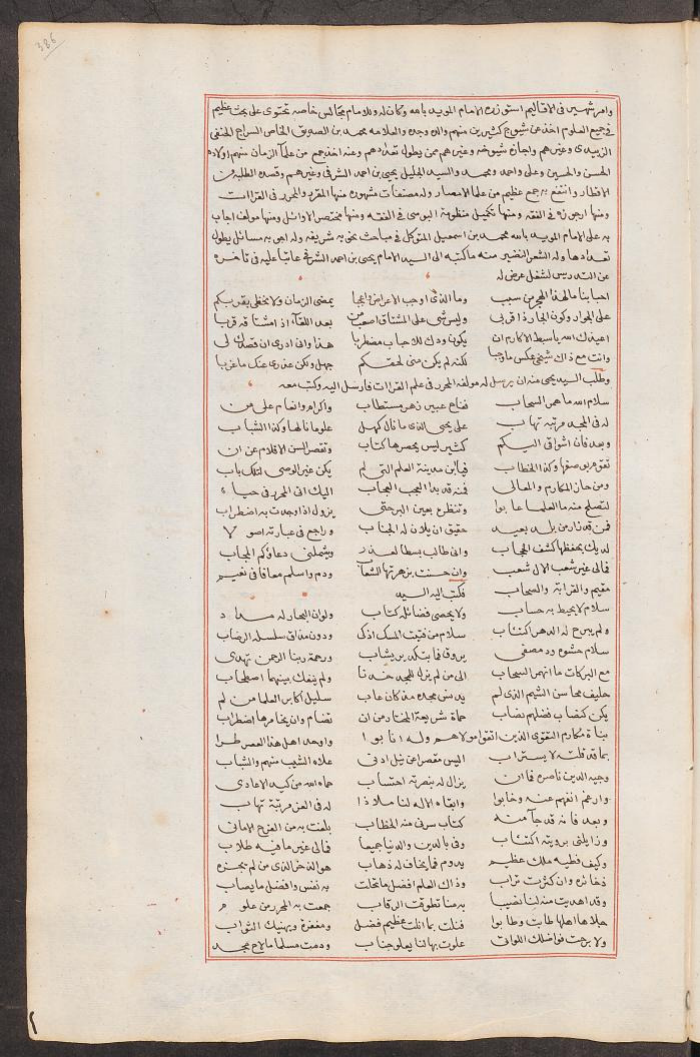 386
وامر شهير في الاقاليم استوزره الامام المويد بالله وكان له وللامام مجالس خاصه تحتوي على بحث عظيم
في جميع العلوم اخذ عن شيوخ كثيرين منهم والده وجده والعلامه محمد بن الصديق الخاص السراج الحنفي
الزبيدي وغيرهم واجازه شيوخه وغيرهم ممن يطول تعدادهم وعنه اخذ جمع من علماء الزمان منهم اولاده
الحسن والحسين وعلي واحمد ومحمد والسيد الجليل يحيى بن احمد الشرفي وغيرهم وقصده الطلبة من
الاقطار وانتفع به جمع عظيم من علما الامصار وله مصنفات مشهوره منها المقرب والمحرر في القراات
ومنها ارجوزه في الفقه ومنها تكميل منظومة البوسي في الفقه ومنها مختصر الاوائل ومنها مولف اجاب
به على الامام المويد بالله محمد بن اسمعيل المتوكل في مباحث نحويه شريفه وله اجوبه مسائل يطول
تعدادها وله الشعر النضير منه ما كتبه الى السيد الامام يحيى بن احمد الشرفي عاتبا عليه في تاخره
عن التدريس لشغل عرض له
احبابنا ما لهذا الهجر من سبب وما الذي اوجب الاعراض واعجبا يمضي الزمان ولا نحظى بقربكم
على الجوار وكون الجار ذا قربى وليس شي على المشتاق اصعب من بعد اللقاء اذا مشتاقه قربا
اعيذك الله باسط الاكارم ان يكون ودك للاحباب مضطربا هذا وان ادرى ان فضلك لي
وانت مع ذاك شيخي عكس ما وجبا لكنه لم يكن مني لحقكم جهل ولكن عذري عنك ما غربا
وطلب السيد يحيى منه ان يرسل له مولفه المحرر في علم القراات فارسل اليه وكتب معه
سلام الله ما همر السحاب ففاح عبير زهر مستطاب واكرام وانعام على من
له في المجد مرتبة تهاب على يحيى الذي ما نال كهل علوما نالها وكذا الشباب
وبعد فان اشواقي اليكم كثير ليس يحصرها كتاب وتقصر السن الاقلام عن ان
فيا ابن مدينة العلم التي لم يكن غير الوصي لتلك باب
ومن حاز المكارم والمعالي فمنه قد بدا العجب العجاب اليك اتى المحرر في حياء
وتنظره بعين البر حتى يزول اذا وجدت به اضطراب
حقيق ان يلان له الجناب وراجع في عبارته اصولا
لديك بحفظها كشف الحجاب واني طالب بسطا لعذر ويشملني دعاؤكم المجاب
فمالي غير شعب الال شعب ودم واسلم معافا في نعيم
مقيم والقرابة والصحاب
فكتب اليه السيد
سلام لا يحيط به حساب ولا يحصي فضائله كتاب ولو ان البحار له مداد
سلام من فتيت المسك اذكى ودون مذاق سلسله الرضاب
ورحمة ربنا الرحمن تهدى
مع البركات ما انهمر السحاب الى من لم يزل للمجد خدنا ولم ينفك بينهما اصطحاب
حليف محاسن الشيم الذي لم يدنس مجده مذ كان عاب سليل اكابر العلما من لم
يكن كنصاب فضلهم نصاب حماة شريعة المختار من ان تضام وان يخامرها اضطراب
بناة مكارم التقوى الذين اتقوا مولاهم وله انابوا واوحد اهل هذا العصر طرا
بما قد قلته لا يستراب اليس مقصرا عن نيل ادنى علاه الشيب منهم والشباب
وجيه الدين ناصره فما ان يزال له بنصرته احتساب حماه الله من كيد الاعادي
وارغم انفهم عنه وخابوا وابقاه الاله لنا ملاذا له في العز مرتبة تهاب
وبعد فانه قد جاء منه كتاب سرني منه الخطاب بلغت به من الفرح الاماني
وزايلني برويته اكتئاب وفي بالدين والدنيا جميعا فمالي غير ما فيه طلاب
وكيف فطيه ملك عظيم يدوم فما يخاف له ذهاب هو الذخر الذي من لم يحزه
ذخائره وان كثرت تراب وذاك العلم افضل ما تحلت به نفس وافضل ما يصاب
وقد اهديت منه لنا نصيبا به منا تطوقت الرقاب جمعت به المحرر من علوم
حلاها اهلها طابت وطابوا فنلت بما انلت عظيم فضل ومغفرة ويهنيك الثواب
ولا برحت فواضلك اللواتي علوت بها لنا يعلو جناب ودمت مسلما ما لاح نجد